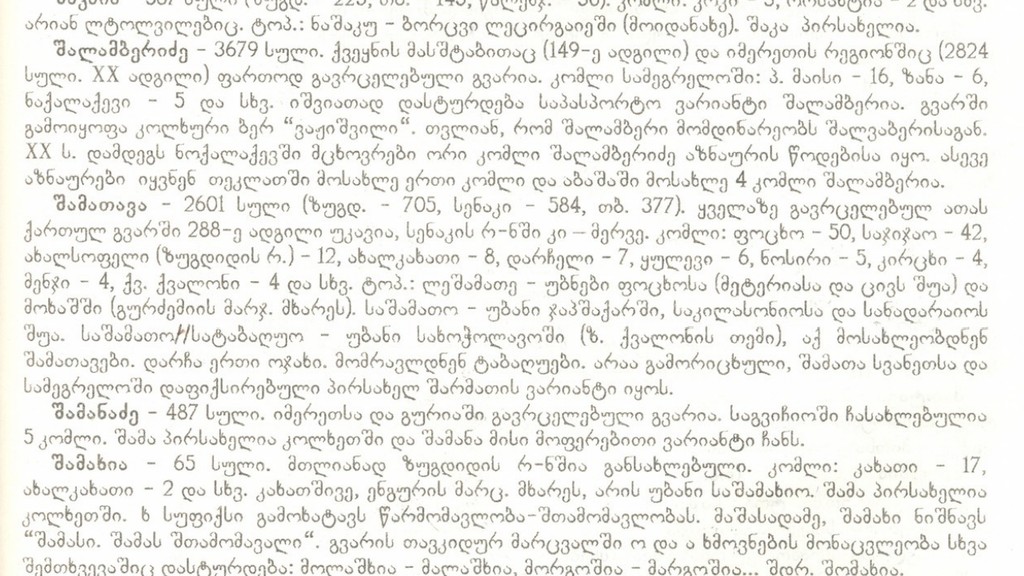 არიან ლტოლვილებიც. ტოპ.: ნაშაკუ - ბორცვი ლეცირგაიეში (მოიდანახე). შაკა პირსახელია.
შალამბერიძე - 3679 სული. ქვეყნის მასშტაბითაც (149-ე ადგილი) და იმერეთის რეგიონშიც (2824
სული. XX ადგილი) ფართოდ გავრცელებული გვარია. კომლი სამეგრელოში: პ. მაისი - 16, ზანა - 6,
ნაქალაქევი - 5 და სხვ. იშვიათად დასტურდება საპასპორტო ვარიანტი შალამბერია. გვარში
გამოიყოფა კოლხური ბერ “ვაჟიშვილი“. თვლიან, რომ შალამბერი მომდინარეობს შალვაბერისაგან.
XX ს. დამდეგს ნოქალაქევში მცხოვრები ორი კომლი შალამბერიძე აზნაურის წოდებისა იყო. ასევე
აზნაურები იყვნენ თეკლათში მოსახლე ერთი კომლი და აბაშაში მოსახლე 4 კომლი შალამბერია.
შამათავა - 2601 სული (ზუგდ. - 705, სენაკი - 584, თბ. 377). ყველაზე გავრცელებულ ათას
ქართულ გვარში 288-ე ადგილი უკავია, სენაკის რ-ნში კი – მერვე. კომლი: ფოცხო - 50, საჯიჯაო - 42,
ახალსოფელი (ზუგდიდის რ.) - 12, ახალკახათი - 8, დარჩელი - 7, ყულევი - 6, ნოსირი - 5, კირცხი - 4,
მენჯი - 4, ქვ. ქვალონი - 4 და სხვ. ტოპ.: ლეშამათე - უბნები ფოცხოსა (მეტერიასა და ცივს შუა) და
მოხაშში (გურძემის მარჯ. მხარეს). საშამათო - უბანი ჯაპშაქარში, საკილასონიოსა და სანადარაიოს
შუა. საშამათო//სატაბაღუო - უბანი სახოჭოლავოში (ზ. ქვალონის თემი), აქ მოსახლეობდნენ
შამათავები. დარჩა ერთი ოჯახი. მომრავლდნენ ტაბაღუები. არაა გამორიცხული, შამათა სვანეთსა და
სამეგრელოში დაფიქსირებული პირსახელ შარმათის ვარიანტი იყოს.
შამანაძე - 487 სული. იმერეთსა და გურიაში გავრცელებული გვარია. საგვიჩიოში ჩასახლებულია
5 კომლი. შამა პირსახელია კოლხეთში და შამანა მისი მოფერებითი ვარიანტი ჩანს.
შამახია - 65 სული. მთლიანად ზუგდიდის რ-ნშია განსახლებული. კომლი: კახათი - 17,
ახალკახათი - 2 და სხვ. კახათშივე, ენგურის მარც. მხარეს, არის უბანი საშამახიო. შამა პირსახელია
კოლხეთში. ხ სუფიქსი გამოხატავს წარმომავლობა-შთამომავლობას. მაშასადამე, შამახი ნიშნავს
“შამასი. შამას შთამომავალი“. გვარის თავკიდურ მარცვალში ო და ა ხმოვნების მონაცვლეობა სხვა
შემთხვევაშიც დასტურდება: მოლაშხია - მალაშხია, მორგოშია - მარგოშია... შდრ. შომახია.